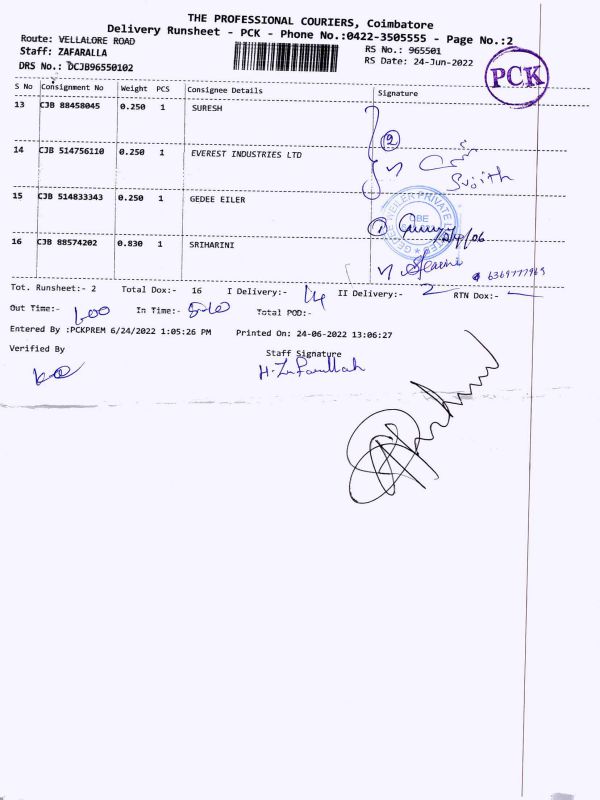 THE PROFESSIONAL COURIERS, Coimbatore
Delivery Runsheet - PCK - Phone No.:0422-3505555 - Page No.:2
Route: VELLALORE ROAD
RS No.: 965501
Staff: ZAFARALLA
RS Date: 24-Jun-2022
DRS No.: DCJB96550102
PCK
S No Consignment No Weight PCS Consignee Details Signature
13 CJB 88458045 0.250 1 SURESH
2
14 CJB 514756110 0.250 1 EVEREST INDUSTRIES LTD
Sujith
15 CJB 514833343 0.250 1 GEDEE EILER
CBE
1
16 CJB 88574202 0.830 1 SRIHARINI
6369777965
Tot. Runsheet:- 2 Total Dox:- 16 I Delivery:- 14 II Delivery:- 2 RTN Dox:-
Out Time:- In Time:- Total POD:-
Entered By :PCKPREM 6/24/2022 1:05:26 PM Printed On: 24-06-2022 13:06:27
Verified By Staff Signature